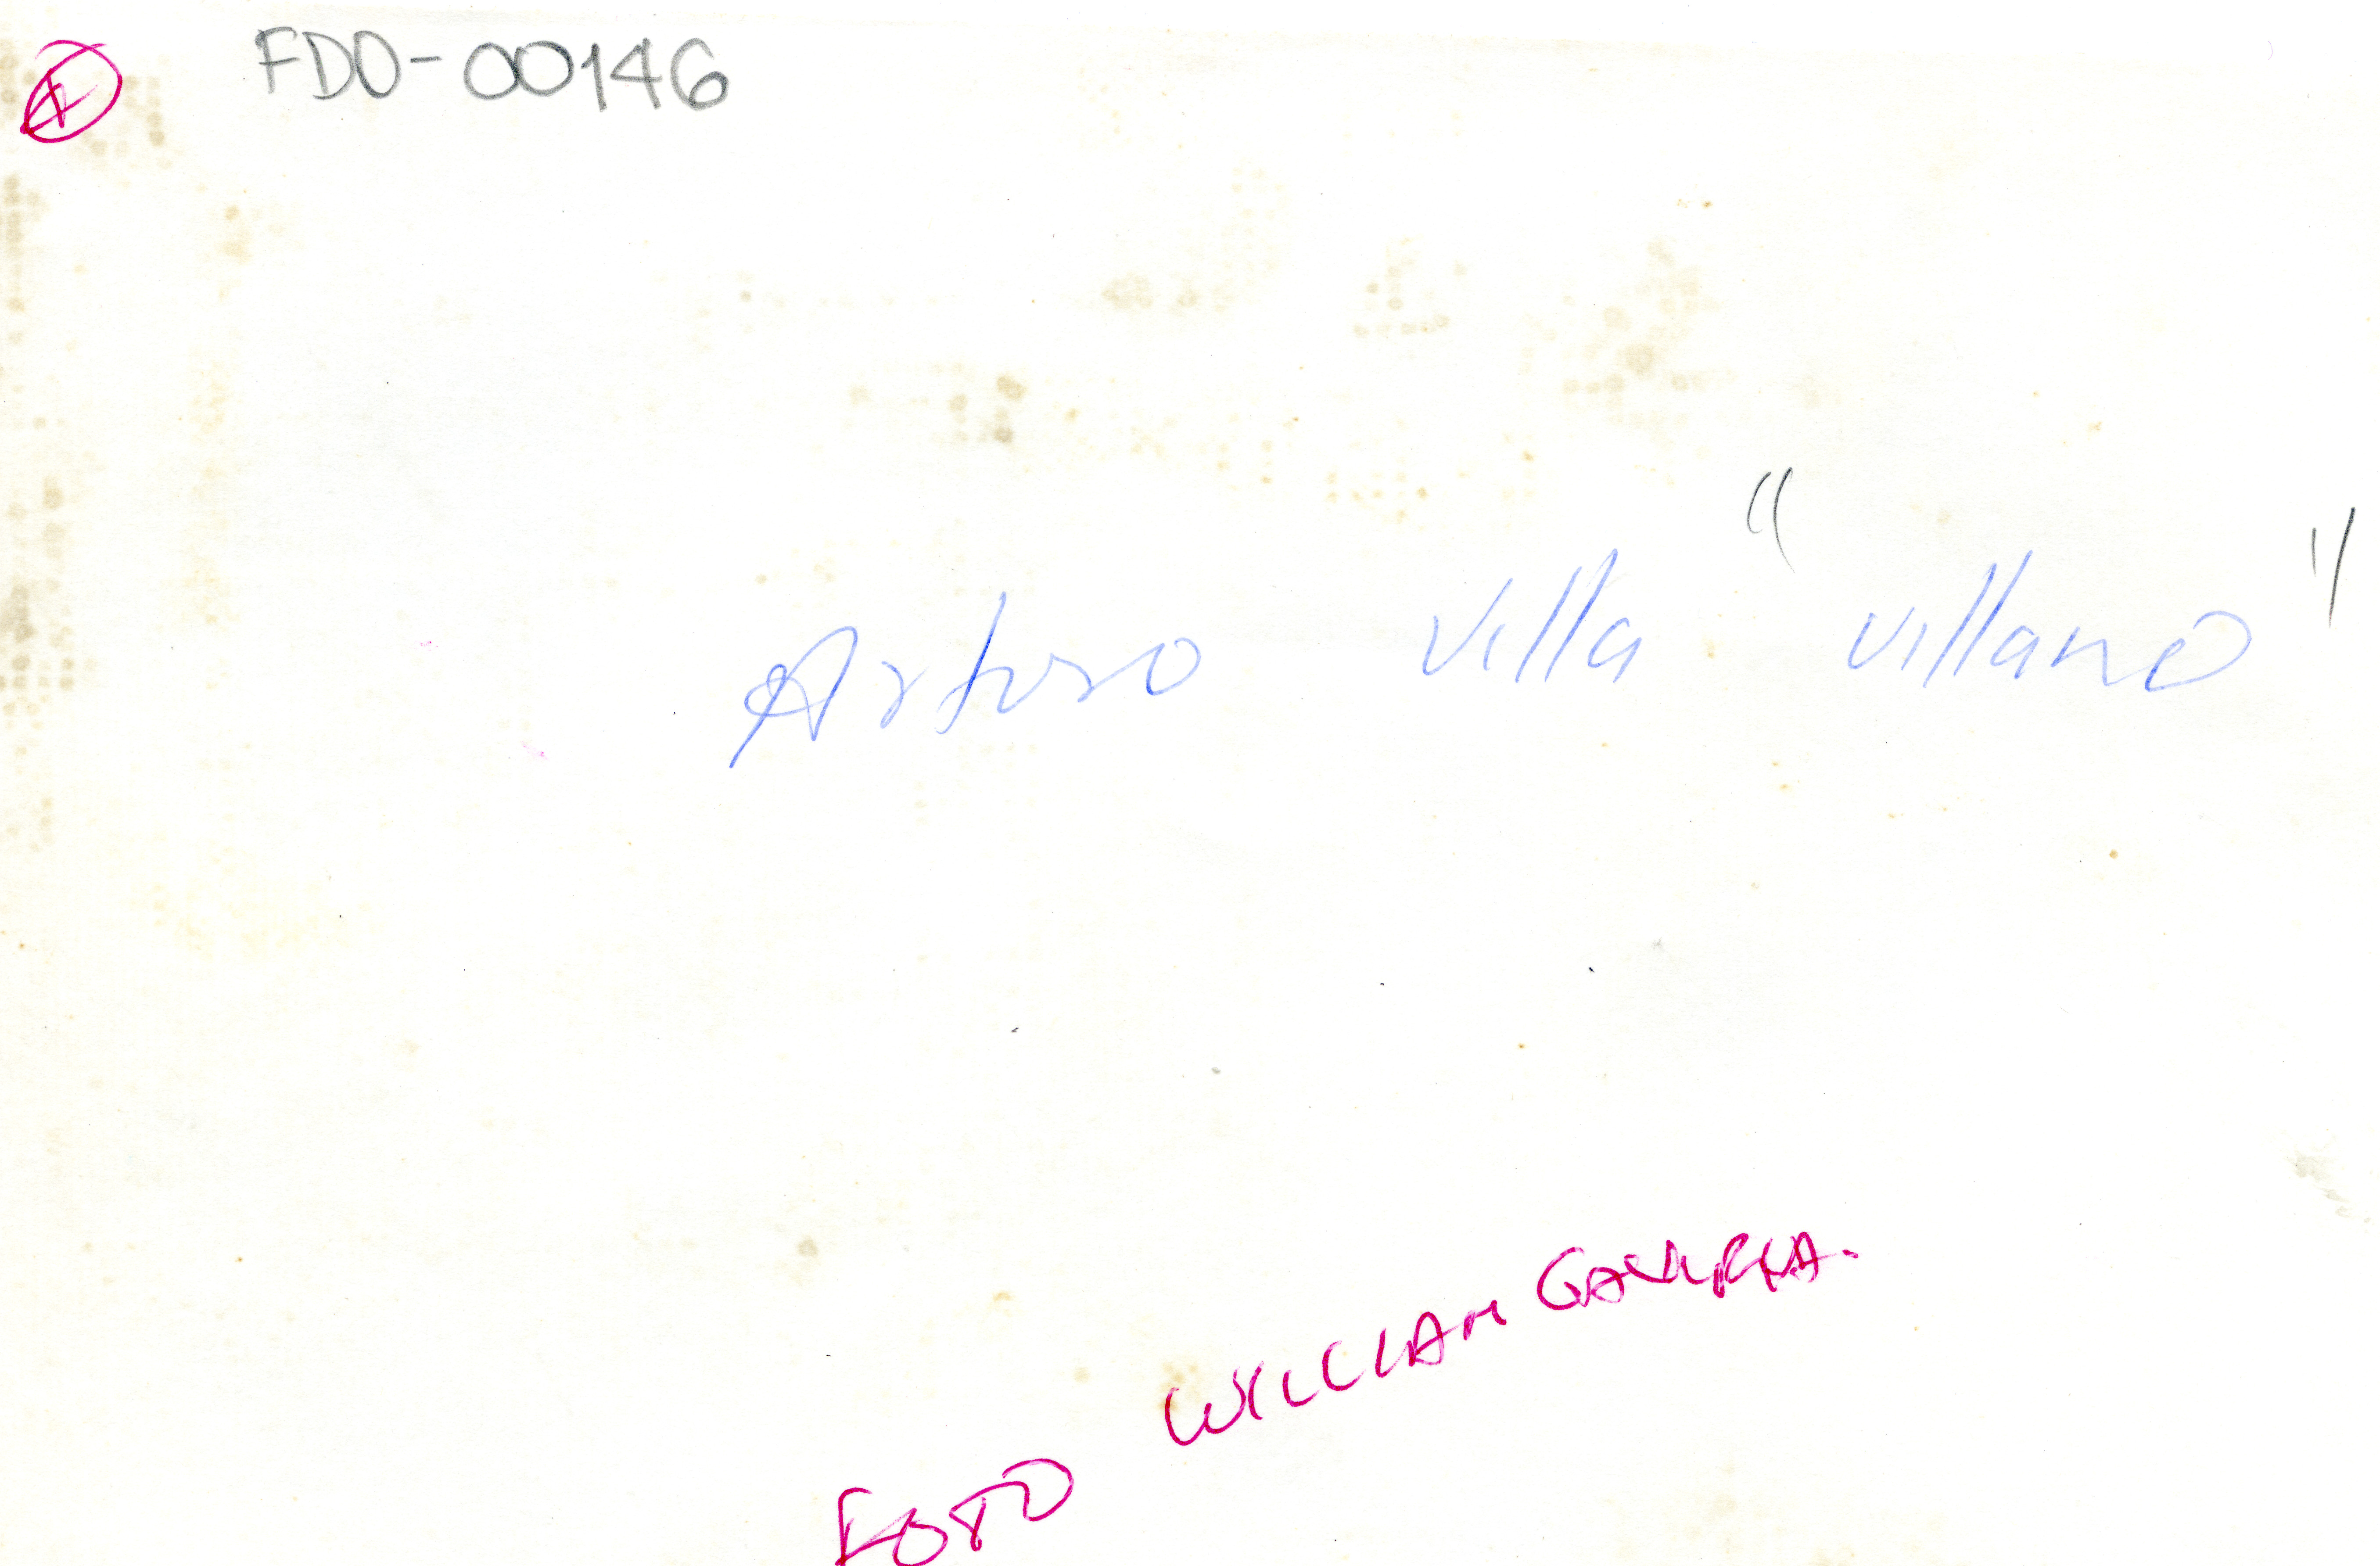 FDO-00146
Arturo villa "villano"
FOTO WILLIAM GAVIRIA.